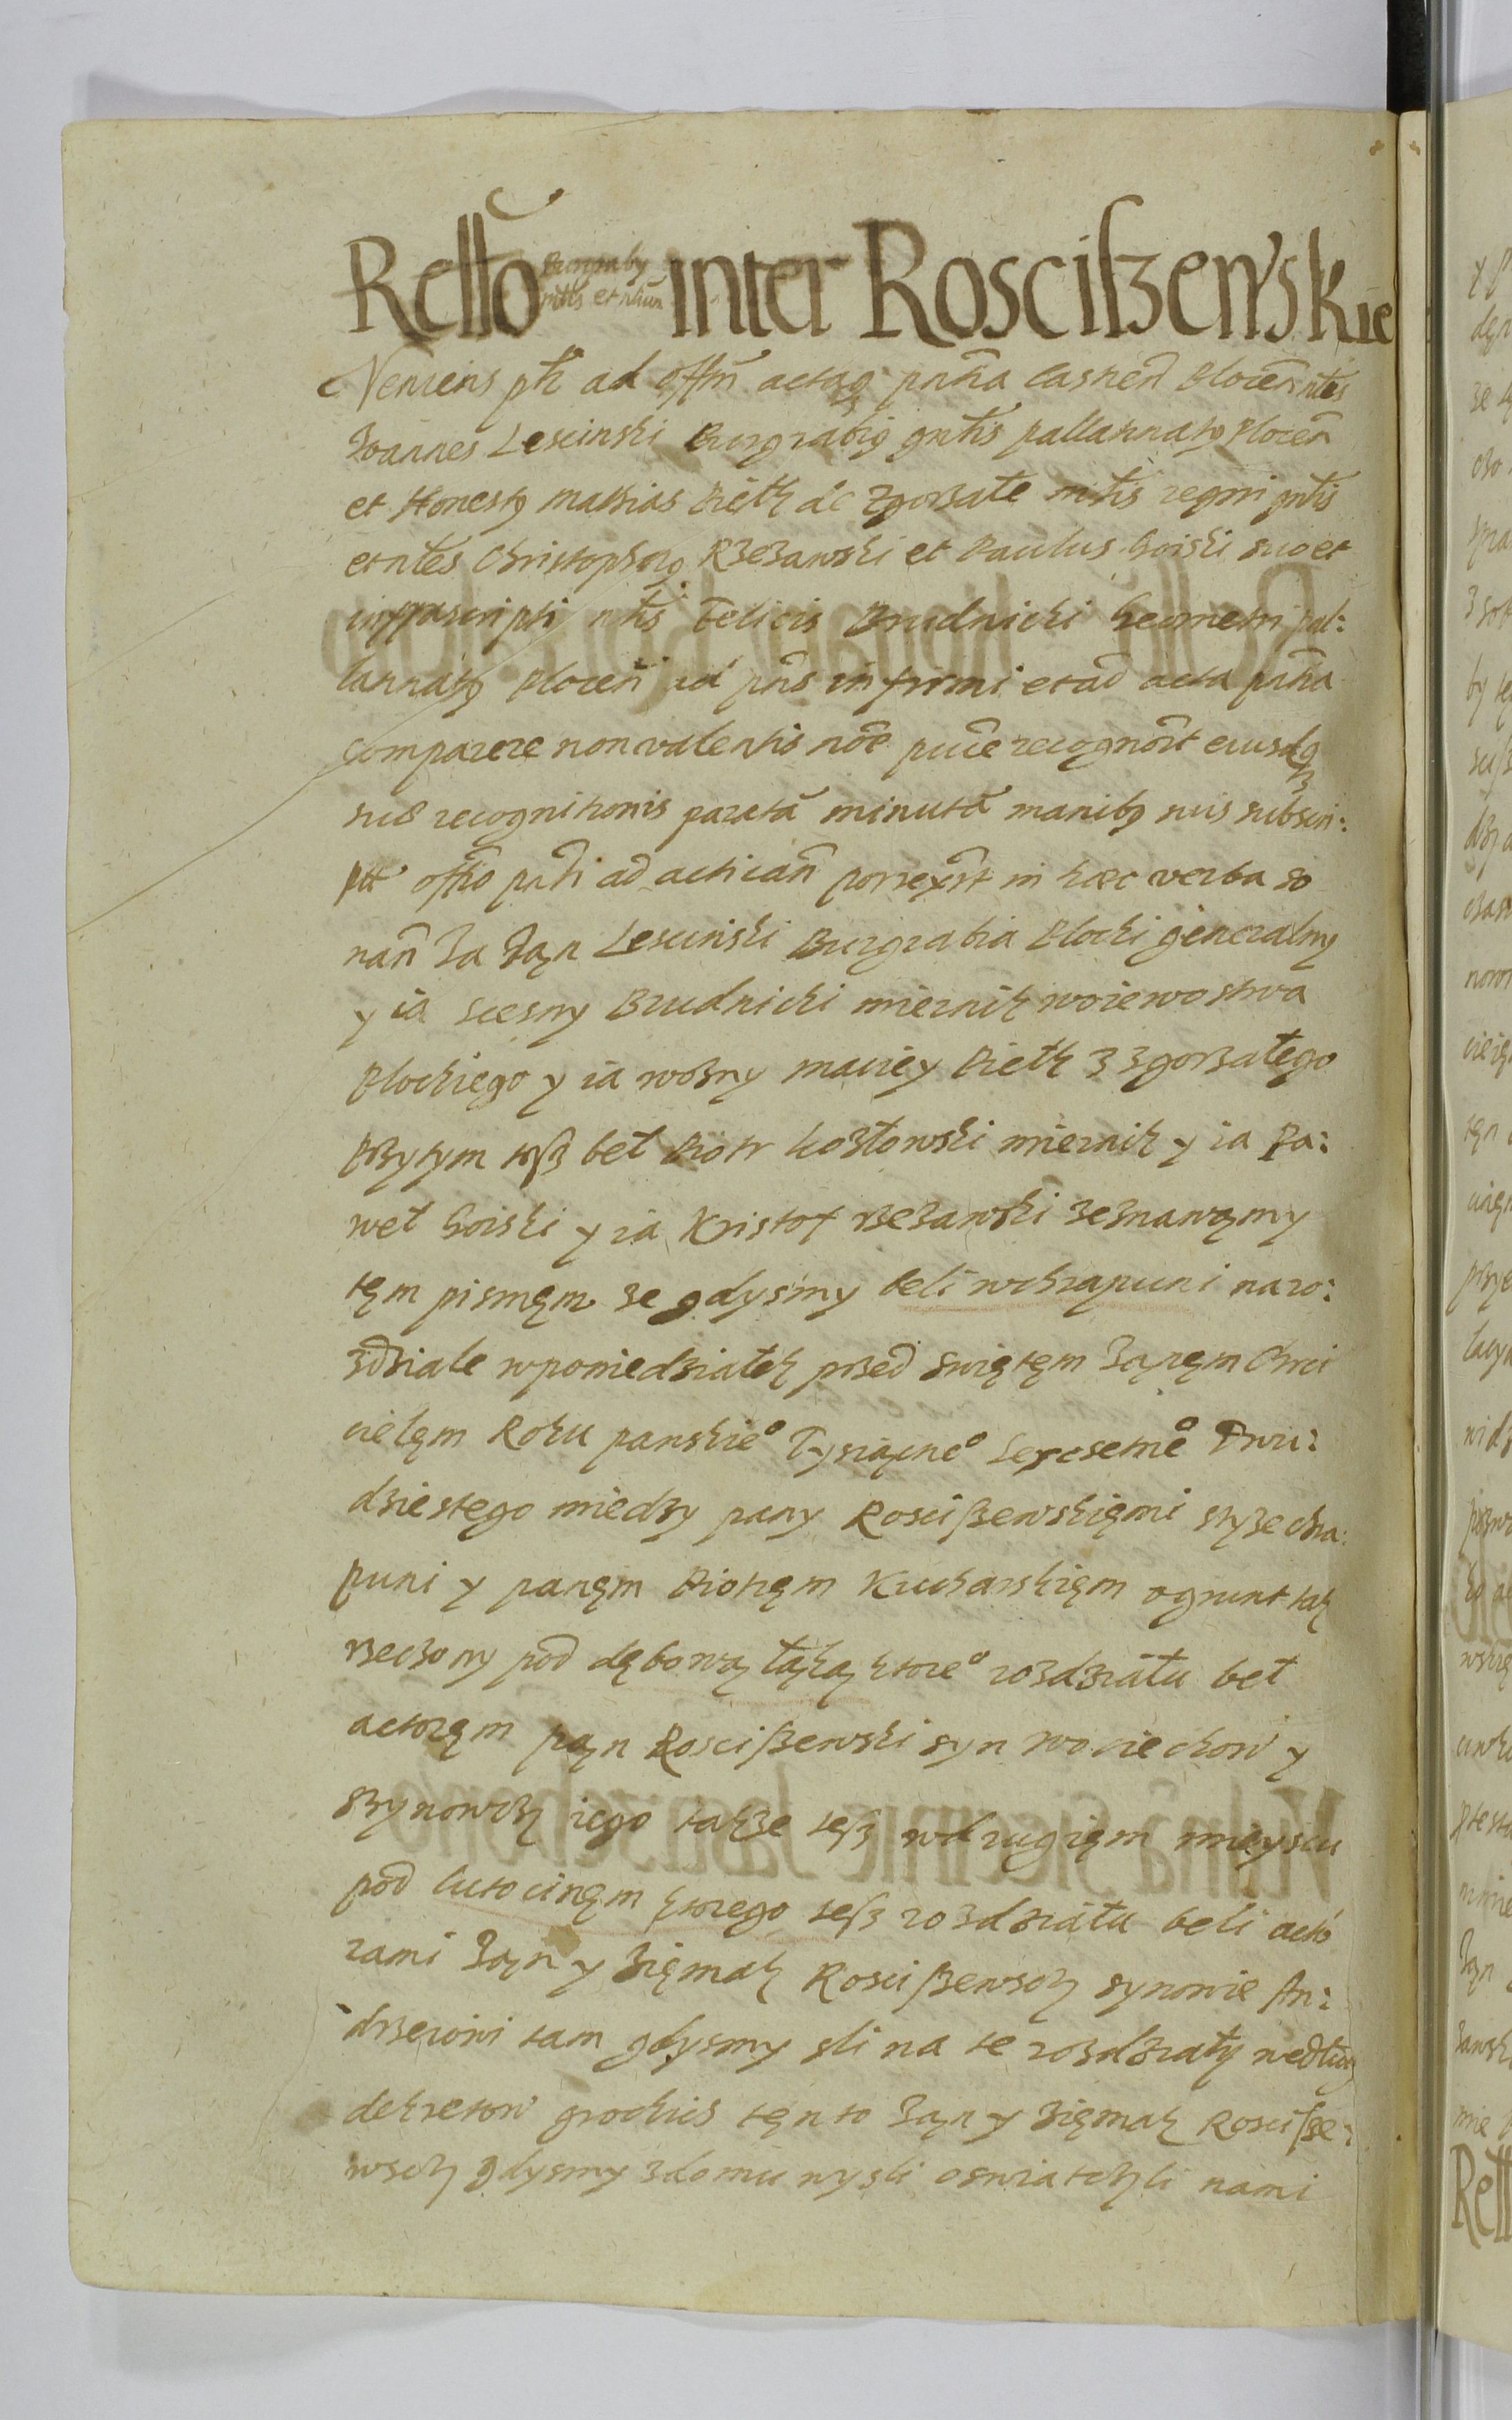 Rel̃to Burgraby mtlis et alium inter Rosciszewskie
Veniens ptr ad offm̃ actaq̃ pn̄tia Castren̄ Plocen̄ ntes
Joannes Lescinski Burgrabiꝰ gn̄tis pallatinatꝰ Plocen̄
et Honestꝰ Mathias Pietk de Zgorzałe mtis regni gn̄tis
et ntes Christophorꝰ Rzezawski et Paulus Goiski suo et
infrascripti ntis Felicis Brudnicki Geometri pal:
latinatꝰ Plocen̄ ad pn̄s infirmi et ad acta pn̄tia
comparere non valentis noe̅ puce recognor̄t eiusdq̃
suæ recognitionis paratā minutā manibꝰ suis subscri:
ptā offo pn̄ti ad acticañ porrexert in hæc verba so
nañ Ja Jąn Lescinski Burgrabia Płocki generalny
y ia Scesny Brudnicki miernik woiewostwa
Płockiego y ia wozny maciey Pietk z zgorzałego
Przytym tesz beł Piotr kozłowski miernik y ia Pa:
weł Goiski y ia Kristof rzezawski zeznawamy
tęm pismęm ze gdysmy beli wchrapuni na ro:
zdziale wponiedziałek przed swiętęm Janęm Chrci
cielęm Roku panskieº Tysiącneº Sexsetneº Dwu:
dziestego miedzy pany Rosciszewskięmi stych chra:
puni y panęm Piotręm Kucharskięm o grunt tak
rzeczony pod dębową łąką ktoreº rozdziału beł
actorem pąn Rosciszewski syn Wociechow y
synowcy iego takze tesz wdrugięm mieyscu
pod lutocinęm ktorego tesz rozdziału beli acto
rami Jąn y Zięmak Rosciszewscy synowie An:
drzeiowi tam gdysmy sli na te rozdziały wedlug
dekretow grockich tęn to Jąn y Zięmak Rosciſze:
wscy gdysmy z domu wysli oswiatczli nami